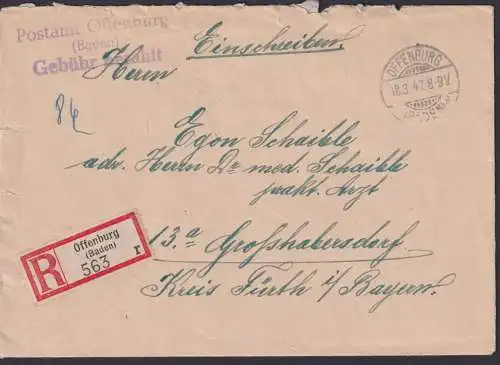 Postamt Offenburg
(Baden)
Gebühr bezahlt
Einschreiben.
OFFENBURG
18.3.47.8-9V
(BADEN)
Herrn
84
Egon Schaible
adr. Herrn Dr. med. Schaible
prakt. Arzt
13.a Großhabersdorf.
Kreis Fürth i/Bayern.
R
Offenburg
(Baden)
563
r